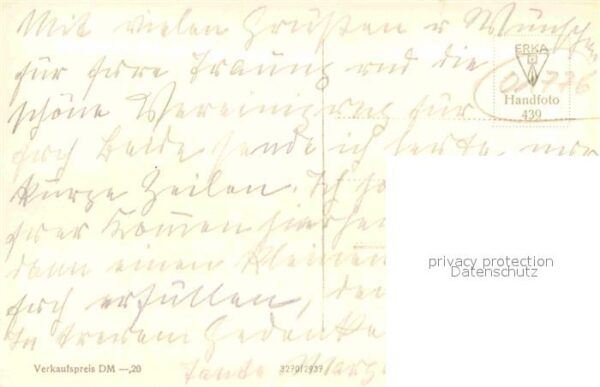 Mit vielen Grüßen u Wünschen
für Ihre Trauung und die
schöne Vereinigung für
Euch Beide sende ich heute nur
kurze Zeilen. Ich
Ihr Kommen hierher
dann einen kleinen
Euch erfüllen,
In treuem Gedenken
Tante
ERKA
Handfoto
439
privacy protection
Datenschutz
Verkaufspreis DM —,20
3270/2937